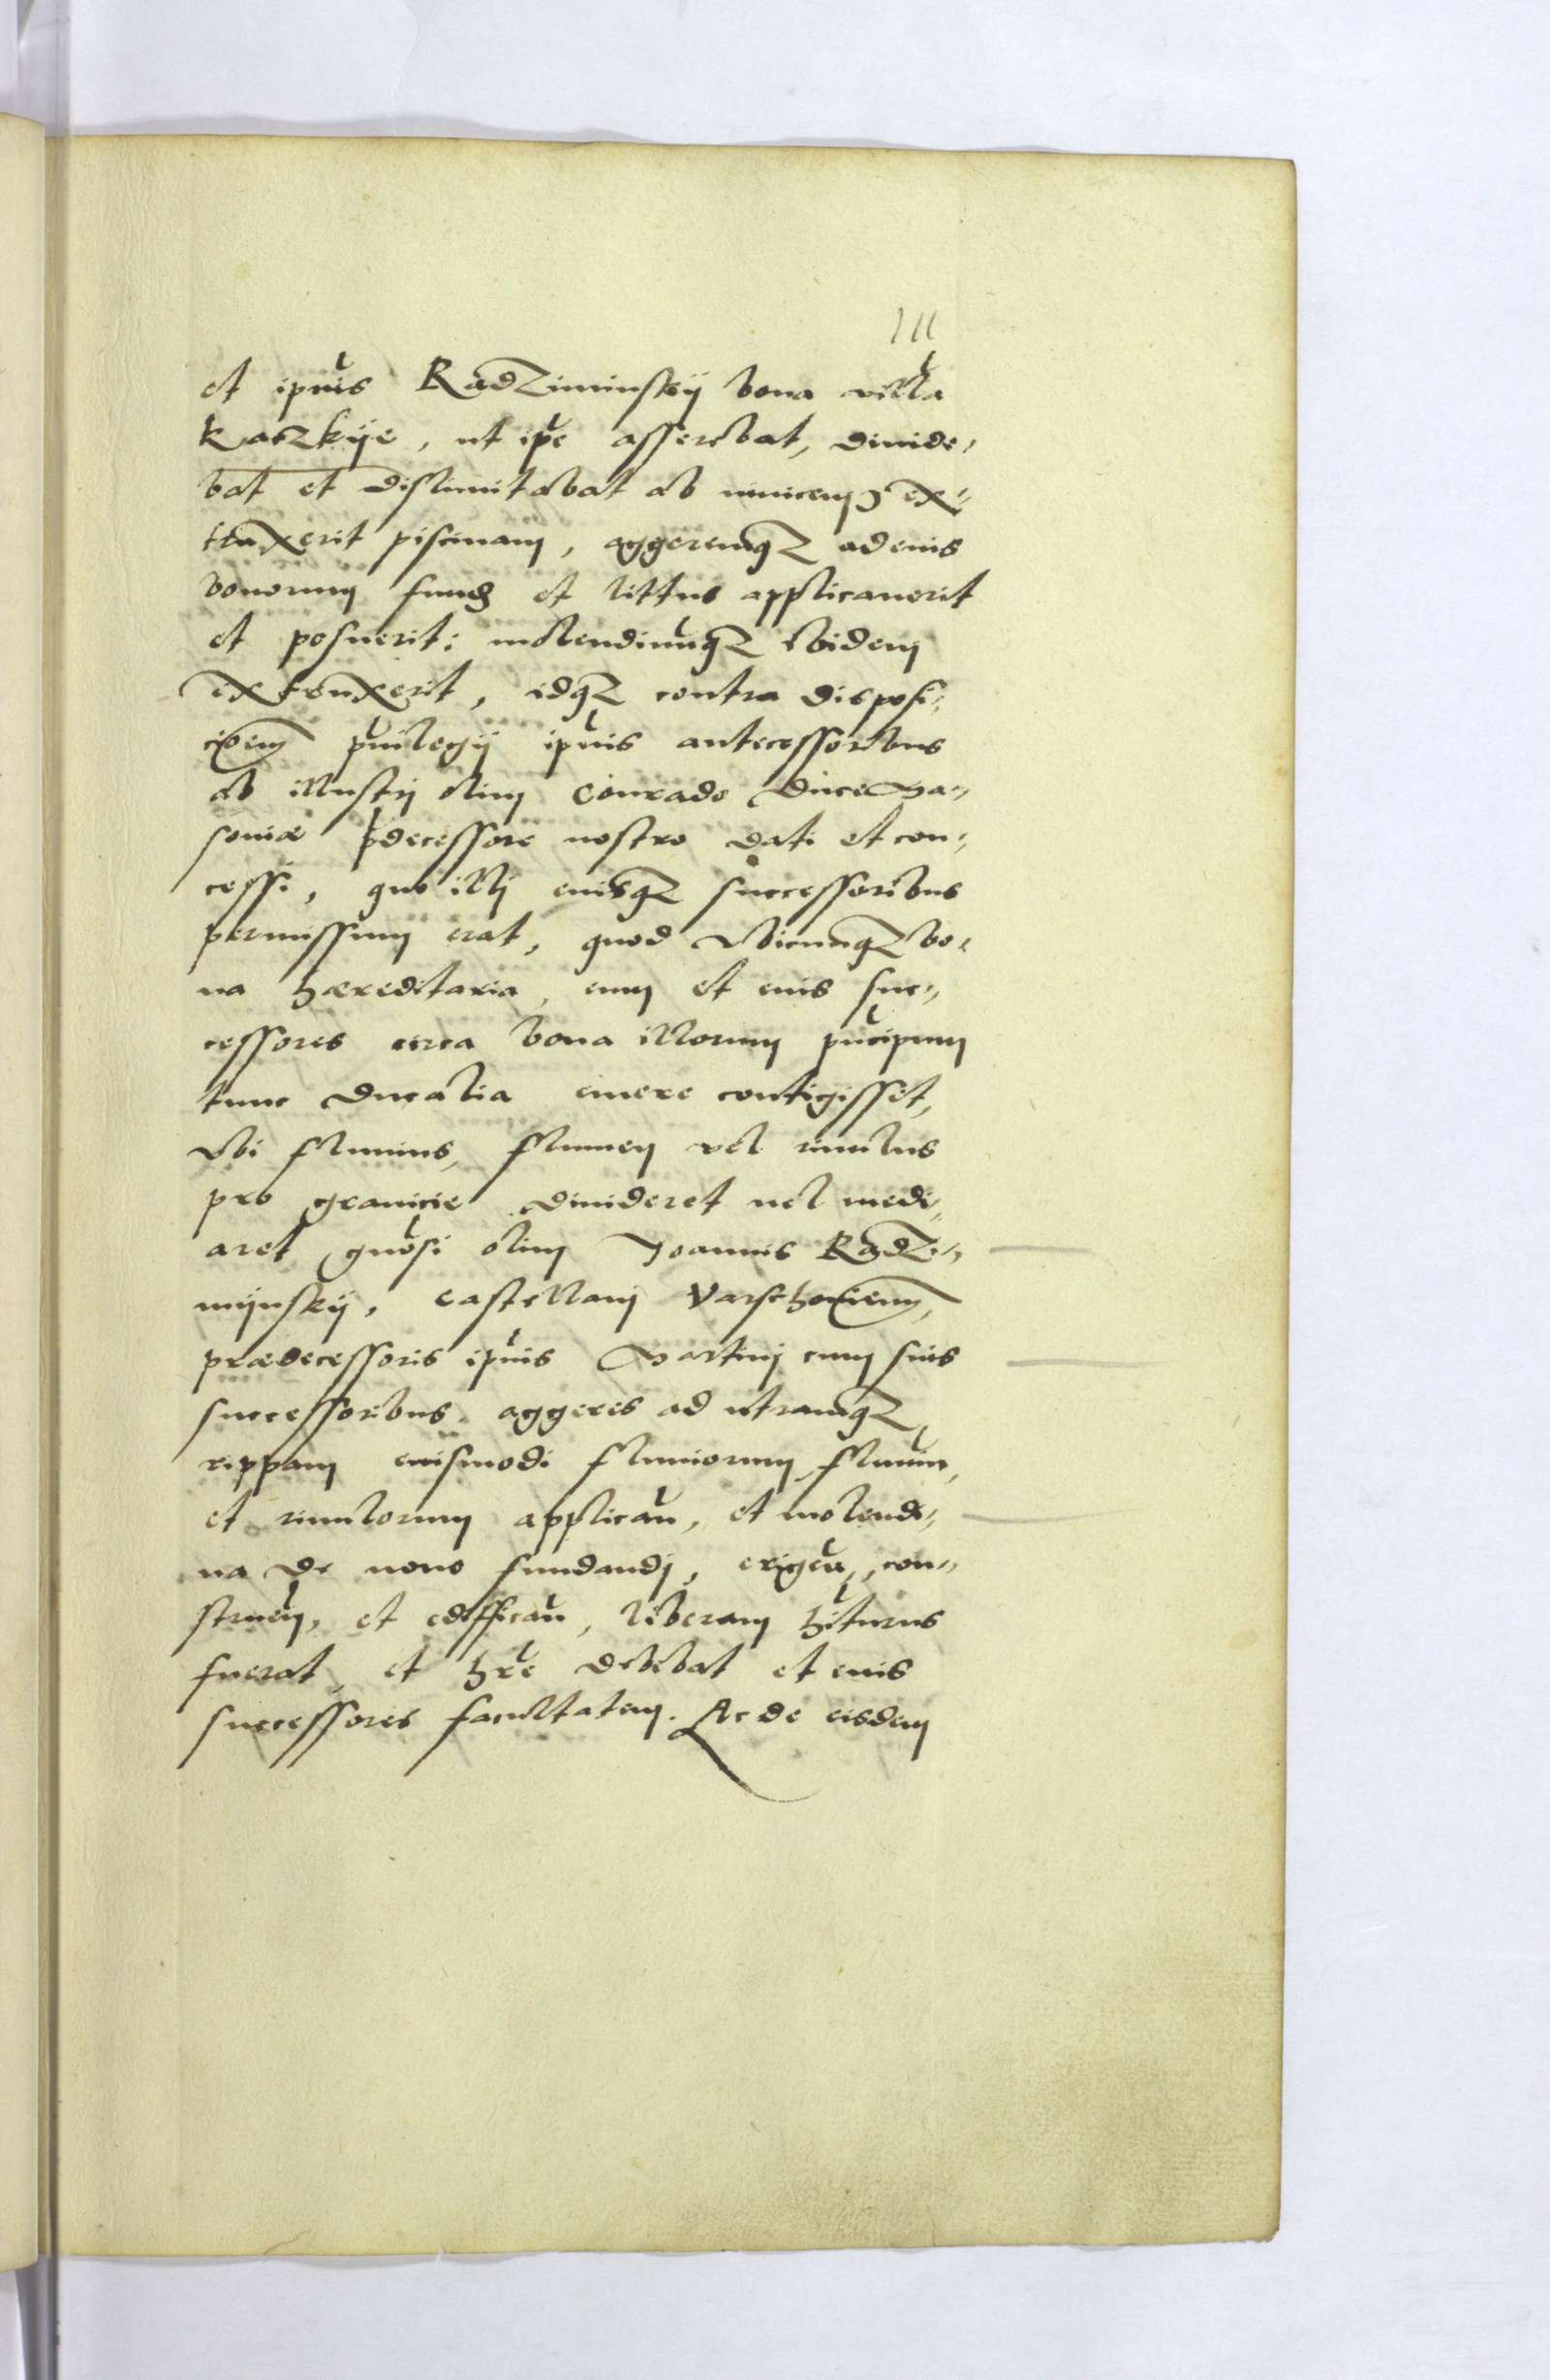 111
et ipius Radziminskij bona villa
Kaczkÿe, ut ipe asserebat, diuide,
bat et dislimitabat ab inuicem, ex,,
truxerit piscinam, aggeremqz ad eius
bonorum fundum et littus applicauerit
et posuerit: molendinuqz ibidem
extruxerit, idqz contra disposi,,
cioem puilegij ipius antecessoribus
ab illustrj olim Conrado Duce Ma,,
souiæ pdecessore nostro dati et con,,
cessi, quo illj eiusqz successoribus
permissum erat, quod vbicunqz bo,
na hæreditaria, eum et eius suc,,
cessores circa bona illorum pucipum
tunc Ducalia emere contigisset,
vbi fluuius, flumen vel riuulus
pro granicie diuideret uel medi,,
aret quosi olim Joannis Radzi,,
mÿnskij, castellanj Varschouien,
prædecessoris ipius Martinj cum suis
successoribus aggeres ad utramqz
rippam eiusmodi fluuiorum, flumin,
et riuulorum applican, et molendi,,
na de nouo fundandj, erigen, con,,
struen, et edifican, liberam hiturus
fuerat, et hre debebat et eius
successores facultatem. Ac de eisdem